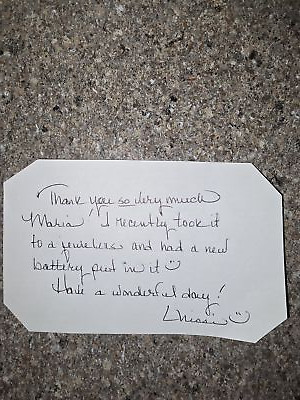 Thank you so very much
Maria! I recently took it
to a jewelers and had a new
battery put in it ☺
Have a wonderful day!